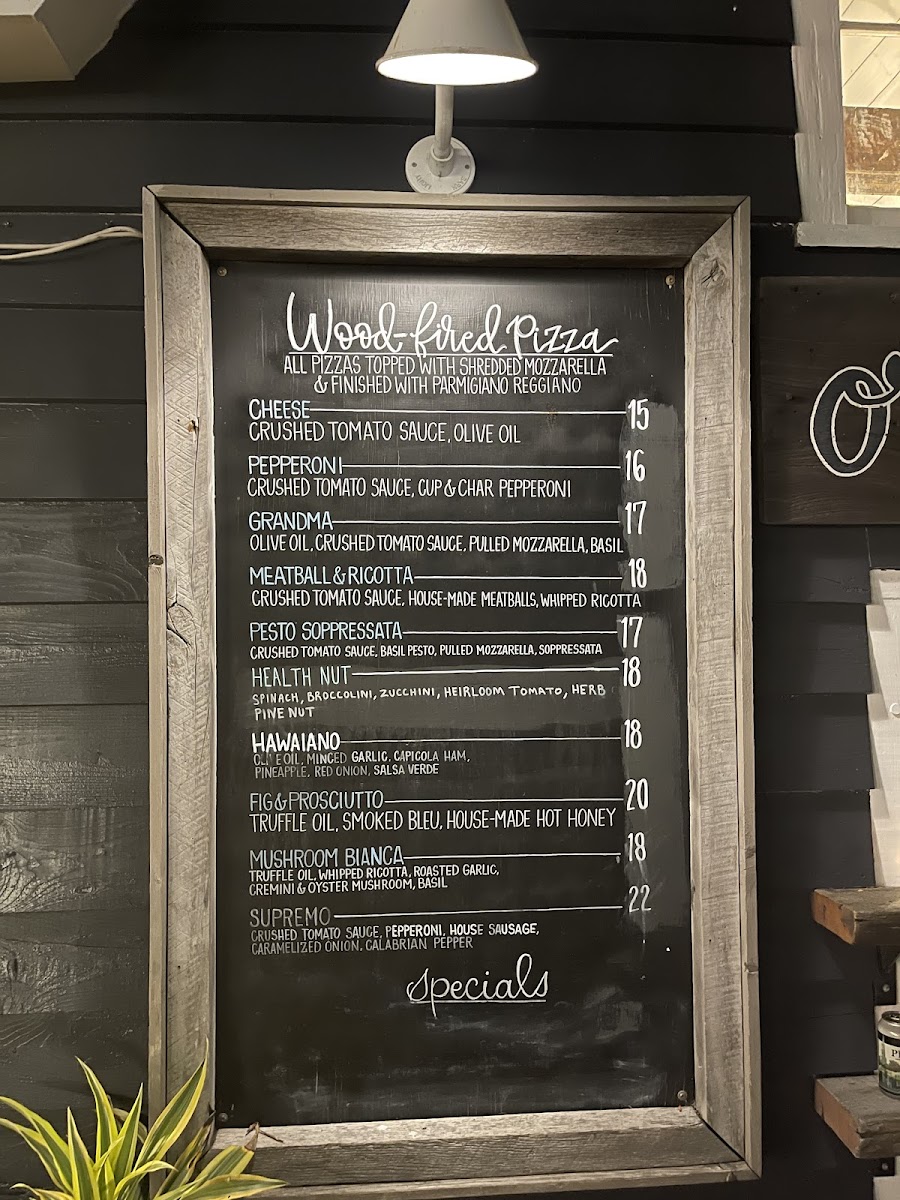 Wood-fired Pizza
ALL PIZZAS TOPPED WITH SHREDDED MOZZARELLA
& FINISHED WITH PARMIGIANO REGGIANO
CHEESE 15
CRUSHED TOMATO SAUCE, OLIVE OIL
PEPPERONI 16
CRUSHED TOMATO SAUCE, CUP & CHAR PEPPERONI
GRANDMA 17
OLIVE OIL, CRUSHED TOMATO SAUCE, PULLED MOZZARELLA, BASIL
MEATBALL & RICOTTA 18
CRUSHED TOMATO SAUCE, HOUSE-MADE MEATBALLS, WHIPPED RICOTTA
PESTO SOPPRESSATA 17
CRUSHED TOMATO SAUCE, BASIL PESTO, PULLED MOZZARELLA, SOPPRESSATA
HEALTH NUT 18
SPINACH, BROCCOLINI, ZUCCHINI, HEIRLOOM TOMATO, HERB
PINE NUT
HAWAIANO 18
OLIVE OIL, MINCED GARLIC, CAPICOLA HAM,
PINEAPPLE, RED ONION, SALSA VERDE
FIG & PROSCIUTTO 20
TRUFFLE OIL, SMOKED BLEU, HOUSE-MADE HOT HONEY
MUSHROOM BIANCA 18
TRUFFLE OIL, WHIPPED RICOTTA, ROASTED GARLIC,
CREMINI & OYSTER MUSHROOM, BASIL
SUPREMO 22
CRUSHED TOMATO SAUCE, PEPPERONI, HOUSE SAUSAGE,
CARAMELIZED ONION, CALABRIAN PEPPER
specials